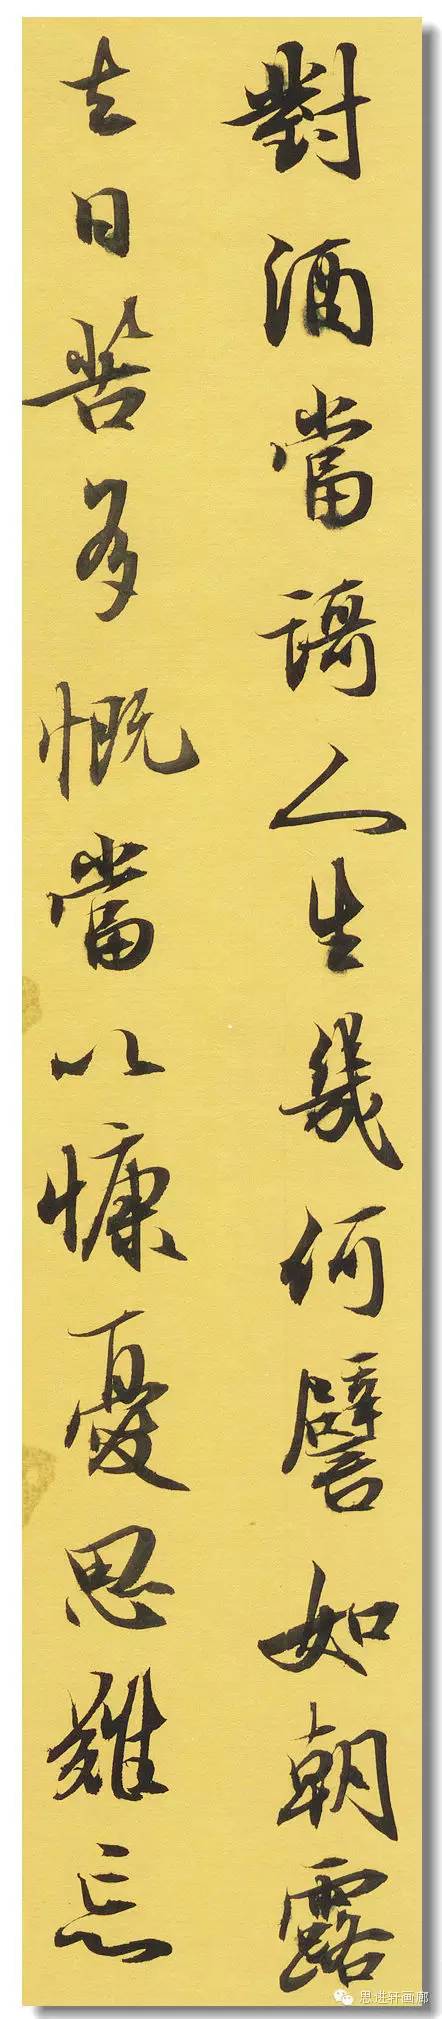 對酒當謌人生幾何譬如朝露
去日苦多慨當以慷憂思難忘
思进轩画廊